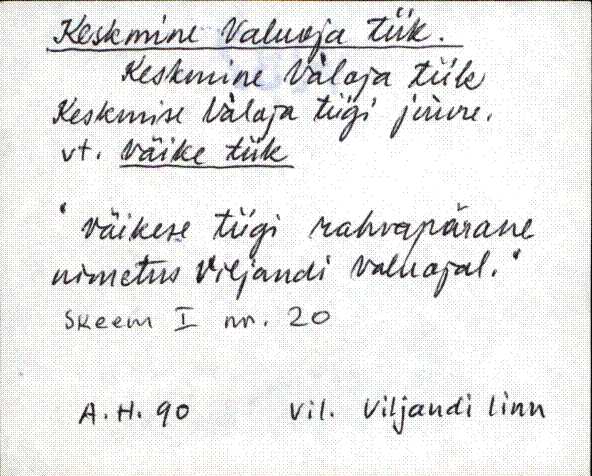 Keskmine Valuoja tiik.
Keskmine Valoja tiik
Keskmise Valoja tiigi juure.
vt. Väike tiik
"Väikese tiigi rahvapärane
nimetus Viljandi Valuojal."
Skeem I nr. 20
A.H. 90 Vil. Viljandi linn